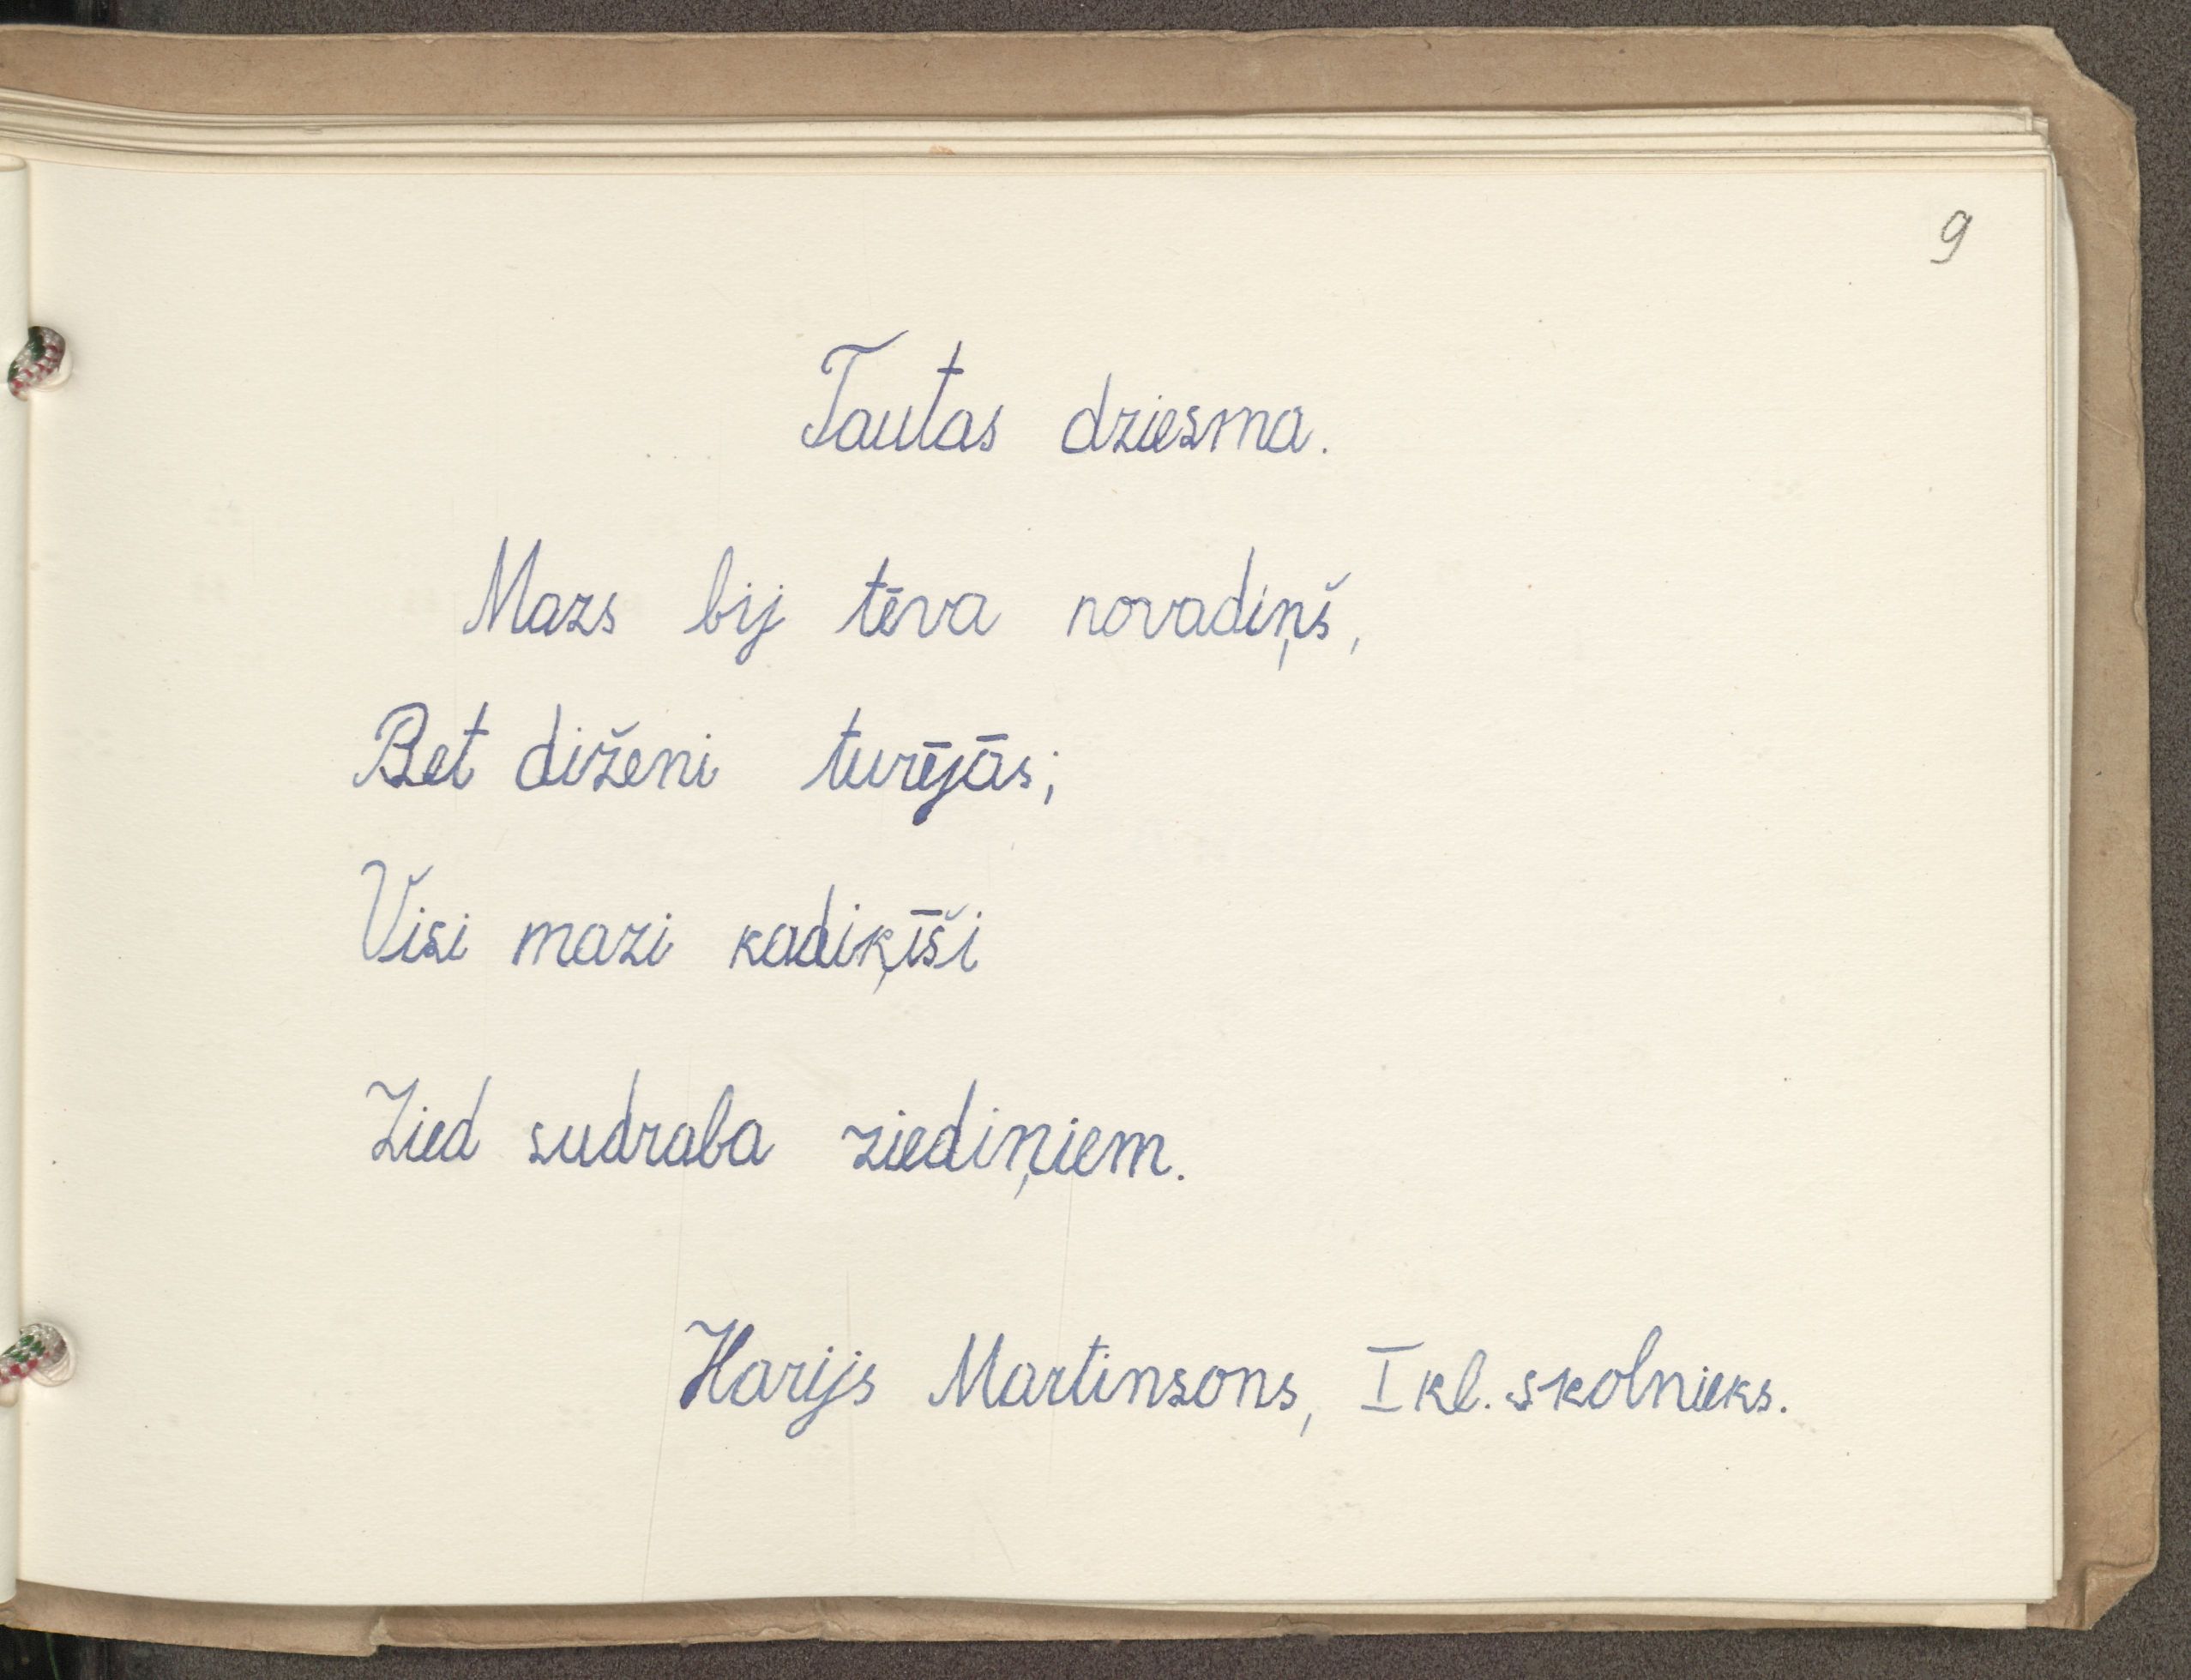 9
Tautas dziesma.
Mazs bij tēva novadiņš,
Bet diženi turējās;
Visi mazi kadiķīši
Zied sudraba ziediņiem.
Harijs Martinsons, I kl. skolnieks.